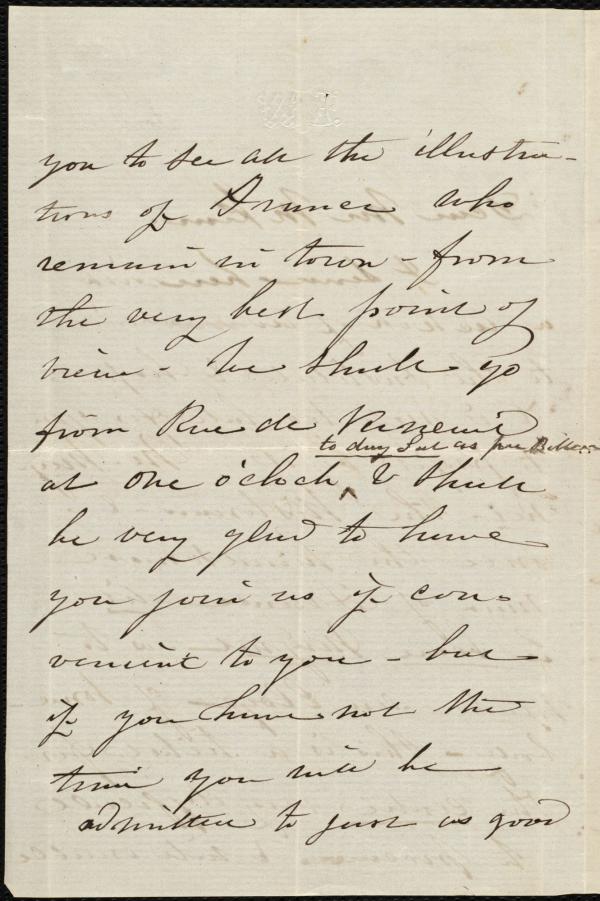 you to see all the illustra-
tions of France who
remain in town - from
the very best point of
view - We shall go
from Rue de
to day Sat as per
at one o'clock & shall
be very glad to have
you join us if con-
venient to you - but
if you have not the
time you will be
admitted to just as good